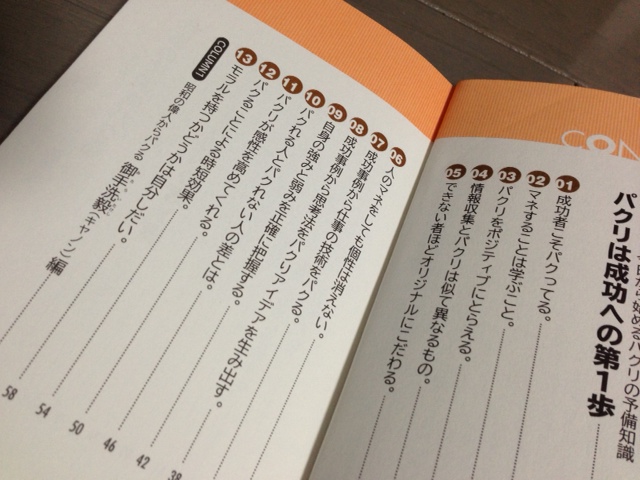 CON
から始めるパクリの予備知識
パクリは成功への第1歩
01 成功者こそパクってる。
02 マネすることは学ぶこと。
03 パクリをポジティブにとらえる。
04 情報収集とパクリは似て異なるもの。
05 できない者ほどオリジナルにこだわる。
06 人のマネをしても個性は消えない。
07 成功事例から仕事の技術をパクる。
08 成功事例から思考法をパクリアイデアを生み出す。
09 自身の強みと弱みを正確に把握する。 38
10 パクれる人とパクれない人の差とは。 42
11 パクリが感性を高めてくれる。 46
12 パクることによる時短効果。 50
13 モラルを持つかどうかは自分しだい。 54
COLUMN1 昭和の偉人からパクる 御手洗毅(キヤノン)編 58